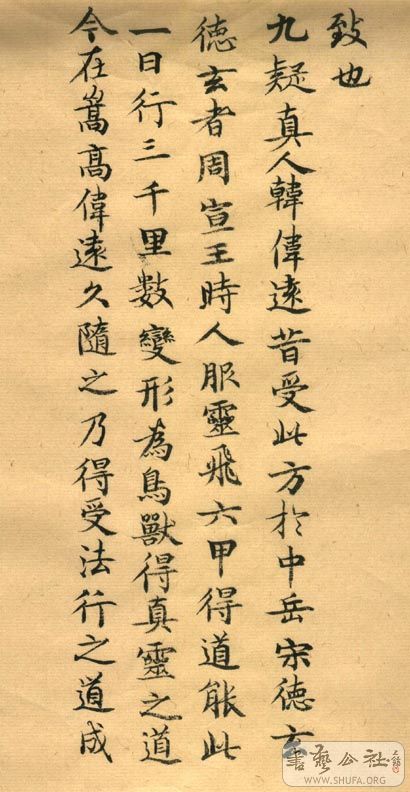 致也
九疑真人韓偉遠昔受此方於中岳宋德玄
德玄者周宣王時人服靈飛六甲得道能此
一日行三千里數變形為鳥獸得真靈之道
今在嵩高偉遠久隨之乃得受法行之道成
書藝公社
WWW.SHUFA.ORG